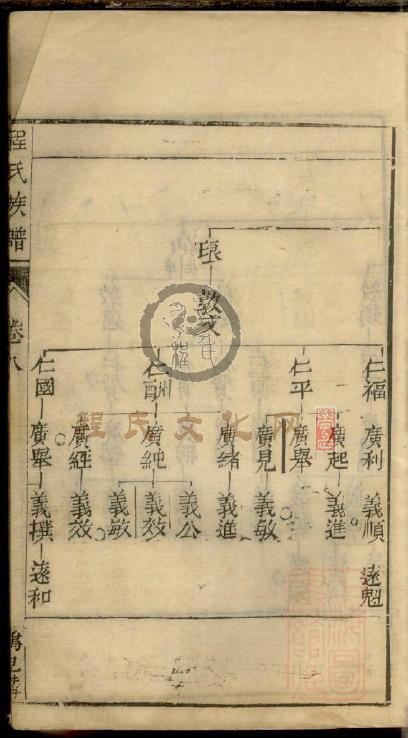 程氏族譜
卷八
琅
敦文
仁福
仁平
仁酬
仁國
廣利
廣起
廣舉
廣見
廣緒
廣純
廣經
廣舉
義順
義進
義敏
義進
義公
義效
義敏
義效
義撲
遂魁
遂和
程氏文化网